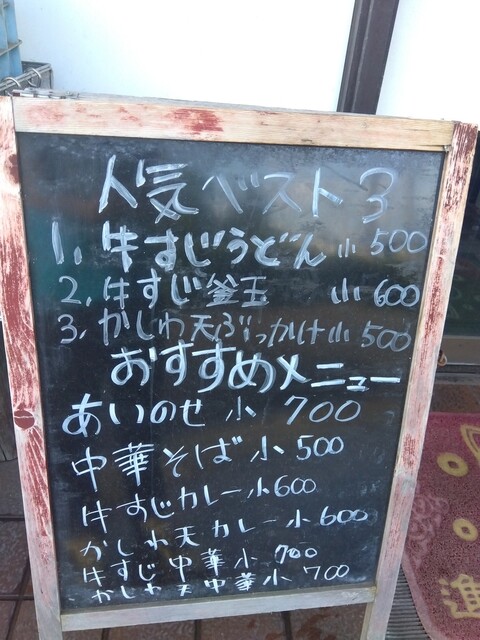 人気ベスト3
1. 牛すじうどん 小 500
2. 牛すじ釜玉 小 600
3. かしわ天ぶっかけ小 500
おすすめメニュー
あいのせ 小 700
中華そば 小 500
牛すじカレー小600
かしわ天カレー小600
牛すじ中華小 700
かしわ天中華小 700
進